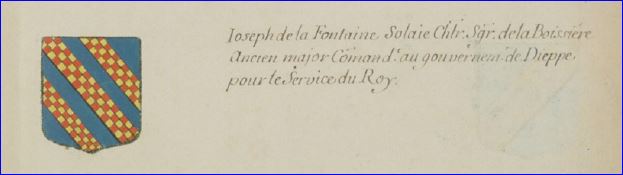 Joseph de la Fontaine Solaie Chlr. Sgr. de la Boissiére
Ancien major Cõmand.t au gouvernem.t de Dieppe,
pour le Service du Roy.